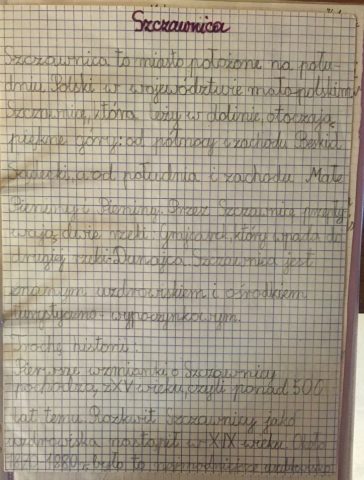 Szczawnica
Szczawnica to miasto położone na połu-
dniu Polski w województwie małopolskim.
Szczawnicę, która leży w dolinie, otaczają
piękne góry: od północy i zachodu Beskid
Sądecki, a od południa i zachodu Małe
Pieniny i Pieniny. Przez Szczawnicę przepły-
wają dwie rzeki: Grajcarek, który wpada do
drugiej rzeki-Dunajca. Szczawnica jest
znanym uzdrowiskiem i ośrodkiem
turystyczno-wypoczynkowym.
Trochę historii:
Pierwsze wzmianki o Szczawnicy
pochodzą z XV wieku, czyli ponad 500
lat temu. Rozkwit Szczawnicy jako
uzdrowiska nastąpił w XIX wieku. Około
roku 1880 było to